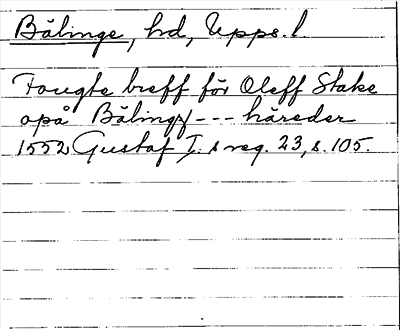 Bälinge, hd, Upps. l
Fougte breff för Oleff Stake
opå Bälingy --- häreder
1552 Gustaf I. s reg. 23, s. 105.